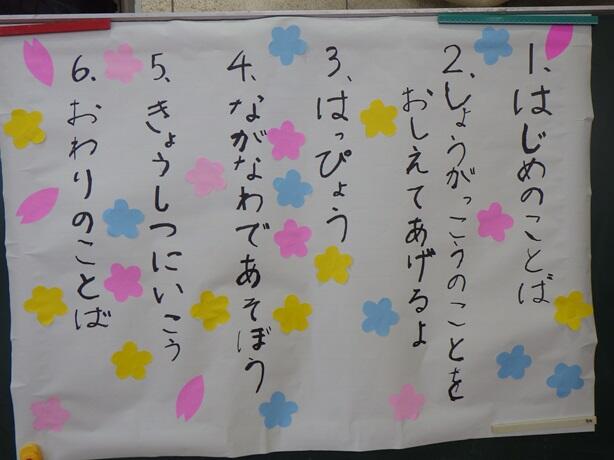 1、はじめのことば
2、しょうがっこうのことを
おしえてあげるよ
3、はっぴょう
4、ながなわであそぼう
5、きょうしつにいこう
6、おわりのことば